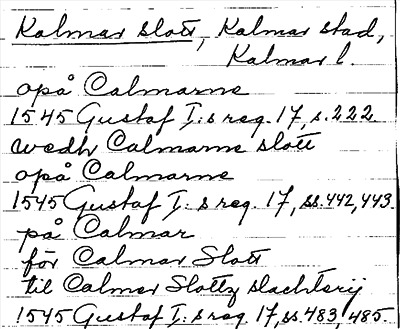 Kalmar slott, Kalmar stad,
Kalmar l.
opå Calmarne
1545 Gustaf I:s reg. 17, s. 222
wedh Calmarne slott
opå Calmarne
1545 Gustaf I:s reg. 17, ss. 442, 443.
på Calmar
för Calmar Slott
til Calmar Slottz slachterij
1545 Gustaf I:s reg 17, ss. 483, 485.